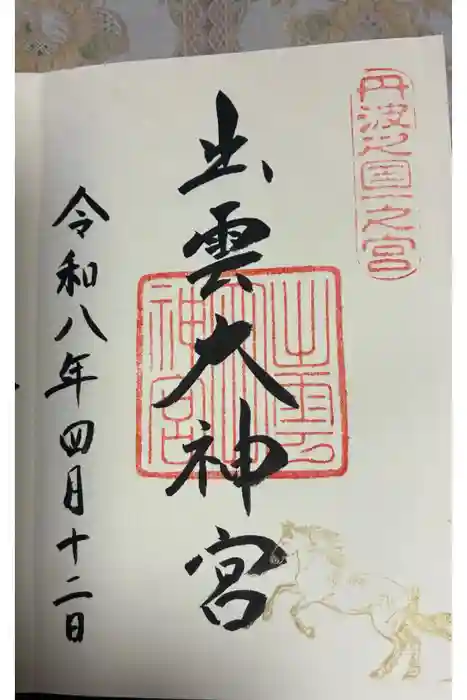 丹波之国一之宮
出雲大神宮
出雲大神宮
令和八年四月十二日